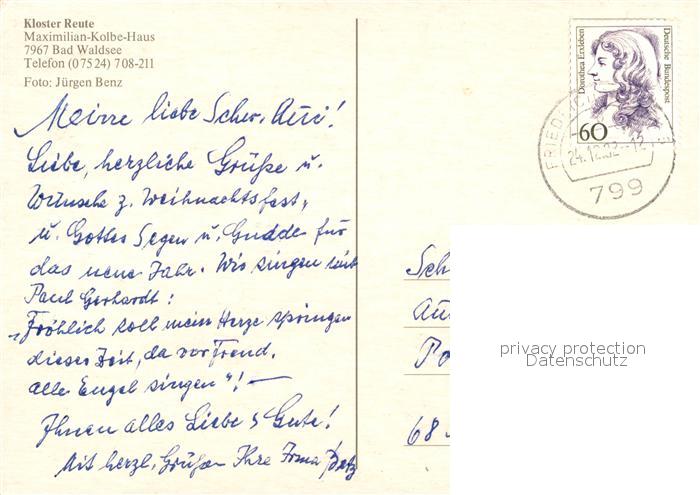 Kloster Reute
Maximilian-Kolbe-Haus
7967 Bad Waldsee
Telefon (07524) 708-211
Foto: Jürgen Benz
Meine liebe Schw.
Liebe, herzliche Grüße u.
Wünsche z. Weihnachtsfest,
u. Gottes Segen u. Güte für
das neue Jahr. Wir singen mit
Paul Gerhardt:
„Fröhlich soll mein Herze springen
dieser Zeit, da vor Freud,
alle Engel singen"! —
Ihnen alles Liebe & Gute!
Mit herzl. Grüßen Ihre Irma
Dorothea Erxleben
Deutsche Bundespost
60
24.12.
799
Sch
Po
68
privacy protection
Datenschutz